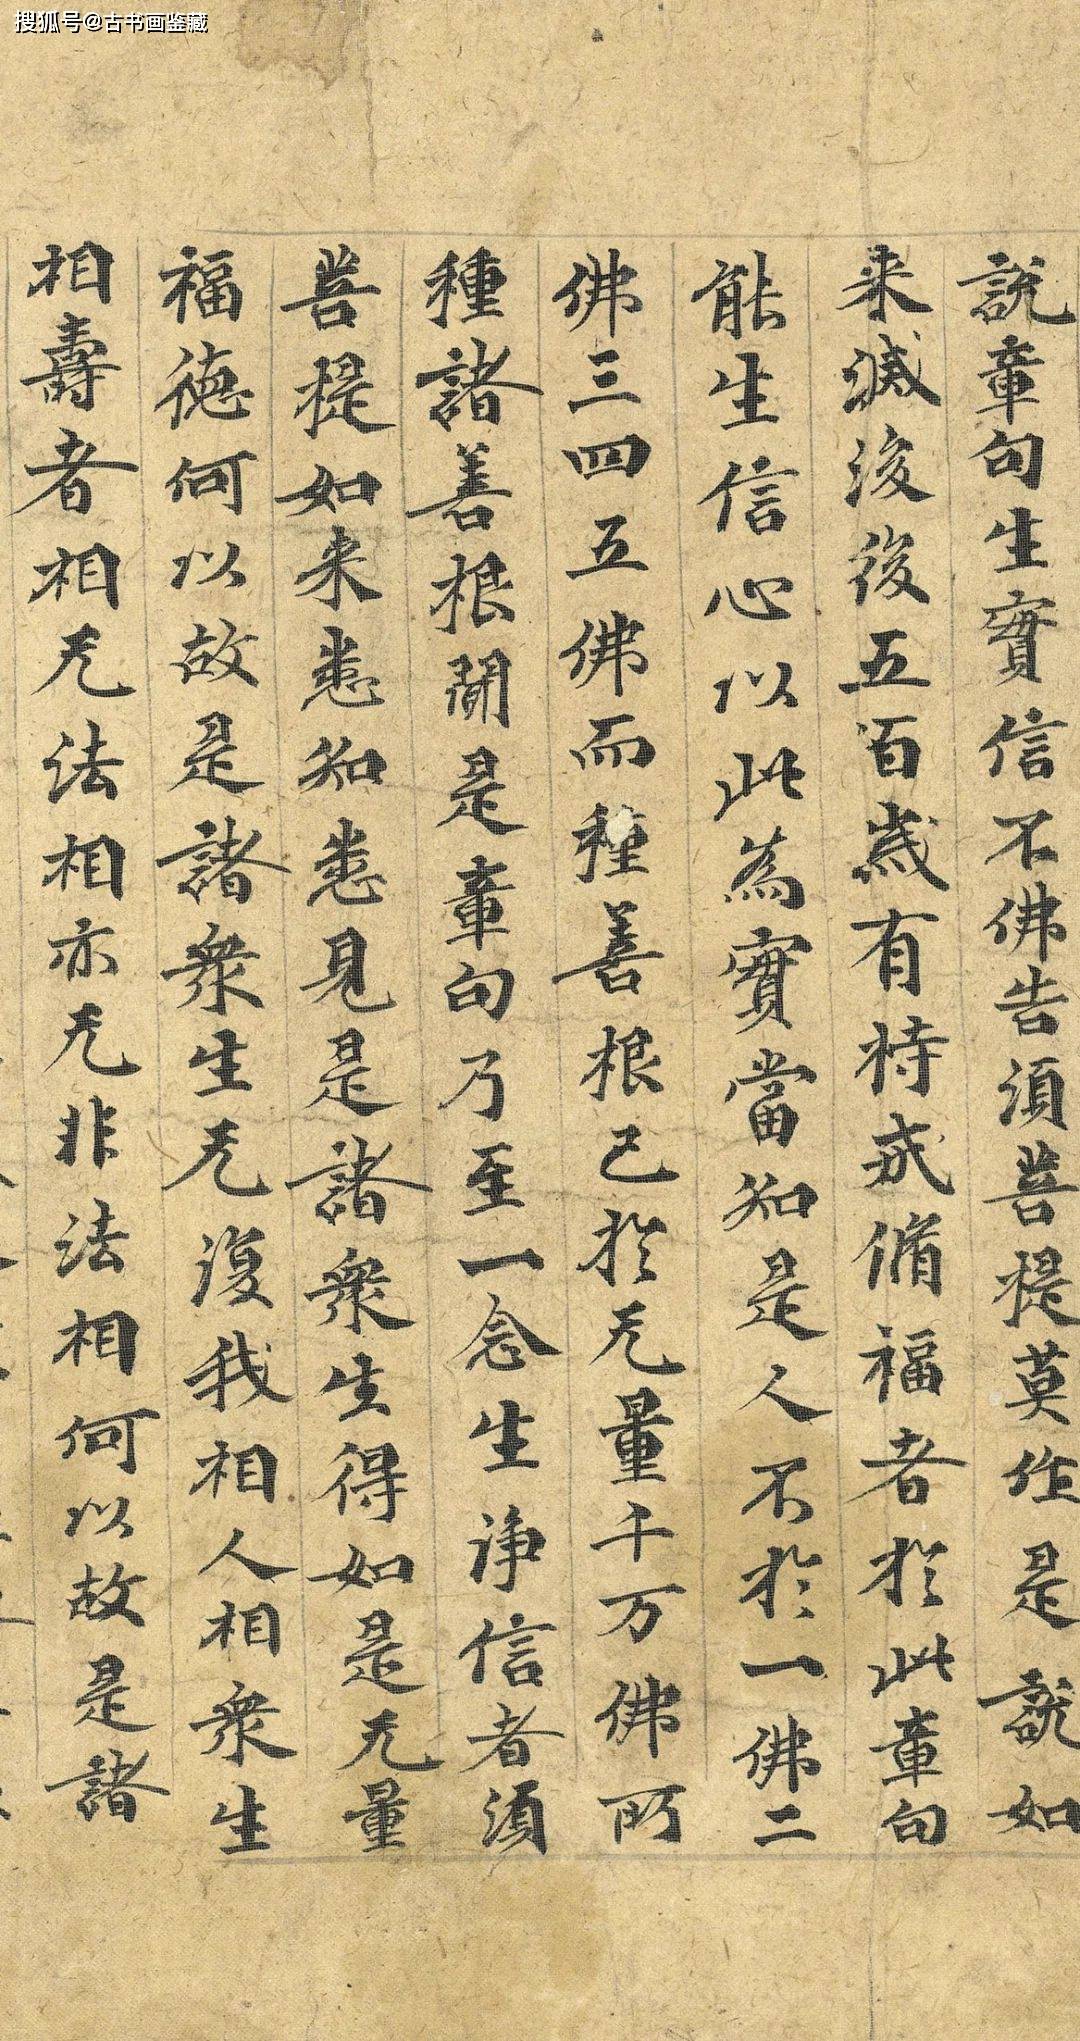 搜狐号@古书画鉴藏
說章句生實信不佛告須菩提莫作是說如
来滅後後五百歲有持戒脩福者於此章句
能生信心以此為實當知是人不於一佛二
佛三四五佛而種善根已於无量千万佛所
種諸善根聞是章句乃至一念生净信者須
菩提如来悉知悉見是諸眾生得如是无量
福德何以故是諸眾生无復我相人相眾生
相壽者相无法相亦无非法相何以故是諸